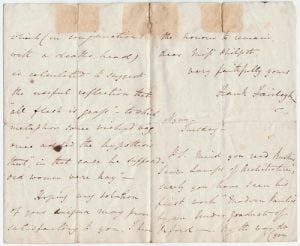 which (in conjunction
with a death's head)
is calculated to suggest
the useful reflection that
"all flesh is grass" - to which
metaphor some wretched wag
once added the hypothesis
that "in that case he supposed
old women were hay" -
Hoping my solution
of your enigma may prove
satisfactory to you. I have
the honour to remain
dear Miss Philpotts
very faithfully yours
Frank Fairlegh
Tuesday -
P.S. Mind you read
Lamps of Architecture
surely you have seen his
first work "Modern Painters
by an Under graduate of
Oxford - By the way do
you